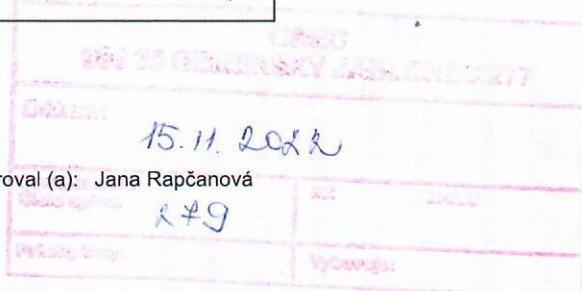 OBEC
980 35 GEMERSKÝ JABLONEC 277
Dátum:
15. 11. 2022
roval (a): Jana Rapčanová
Číslo spisu:
279
Prílohy/listy:
Vybavuje: